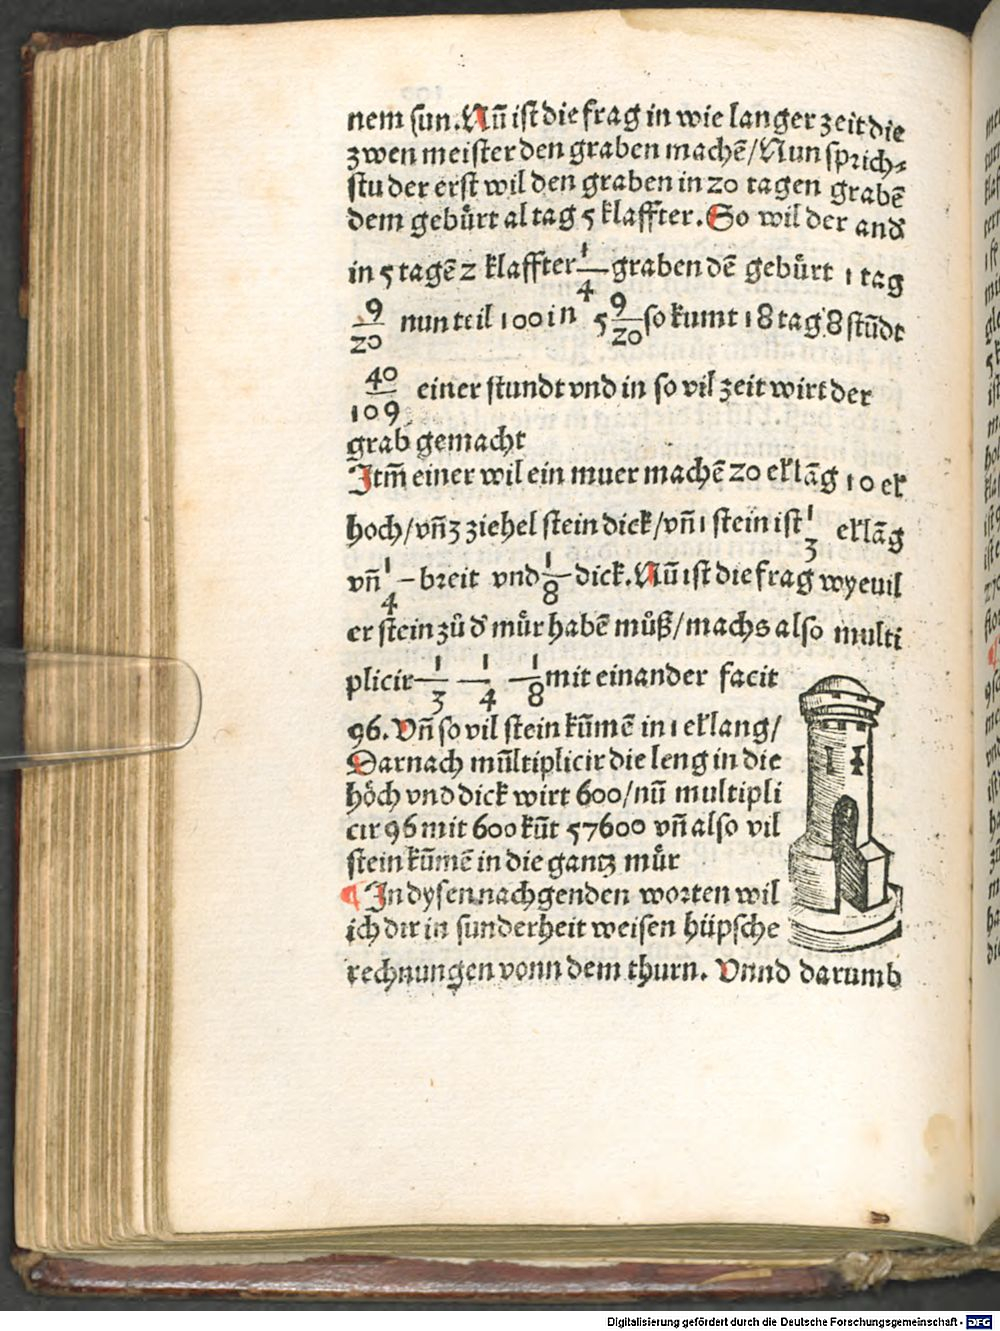 nem sun. Nũ ist die frag in wie langer zeit die
zwen meister den graben machẽ/ Nun sprich⸗
stu der erst wil den graben in 20 tagen grabẽ
dem gebůrt al tag 5 klaffter. So wil der and̃
in 5 tagẽ 2 klaffter 1/4 graben dẽ gebůrt 1 tag
9/20 nun teil 100 in 5 9/20 so kumt 18 tag 8 stũdt
40/109 einer stundt vnd in so vil zeit wirt der
grab gemacht
Itm̃ einer wil ein muer machẽ 20 eklãg 10 ek
hoch/ vñ 3 ziehel stein dick/ vñ 1 stein ist 1/3 eklãg
vñ 1/4 breit vnd 1/8 dick. Nũ ist die frag wyeuil
er stein zů d̃ můr habẽ můß/ machs also multi
plicir 1/3 1/4 1/8 mit einander facit
96. Vñ so vil stein kũmẽ in 1 eklang/
Darnach mũltiplicir die leng in die
hȯch vnd dick wirt 600/ nũ multipli
cir 96 mit 600 kũt 57600 vñ also vil
stein kũmẽ in die gantz můr
¶ In dysen nachgenden worten wil
ich dir in sunderheit weisen hüpsche
rechnungen vonn dem thurn. Vnnd darumb
Digitalisierung gefördert durch die Deutsche Forschungsgemeinschaft - DFG